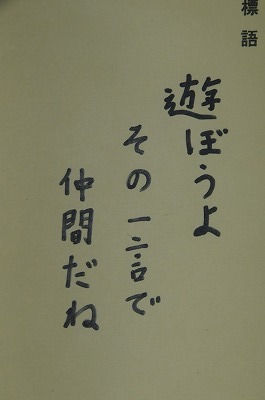 標語
遊ぼうよ
その一言で
仲間だね